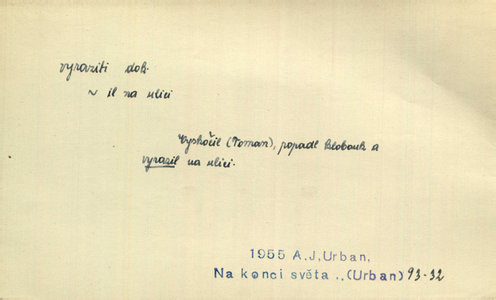 vyraziti dok.
~ il na ulici
Vyskočil (Toman), popadl klobouk a
vyrazil na ulici.
1955 A.J.Urban.
Na konci světa .,(Urban) 93-32